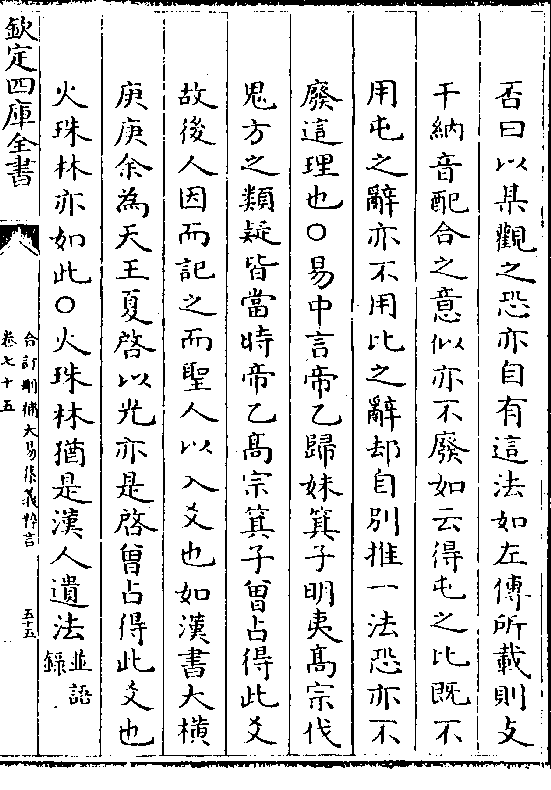 否曰以某觀之恐亦自有這法如左傳所載則支
干納音配合之意似亦不廢如云得屯之比既不
用屯之辭亦不用比之辭却自別推一法恐亦不
廢這理也○易中言帝乙歸妹箕子明夷髙宗伐
鬼方之類疑皆當時帝乙髙宗箕子曽占得此爻
故後人因而記之而聖人以入爻也如漢書大横
庚庚余為天王夏啓以光亦是啓曽占得此爻也
火珠林亦如此○火珠林猶是漢人遺法並語
錄
欽定四庫全書
合訂刪補大易集義粹言
卷七十五
五十五